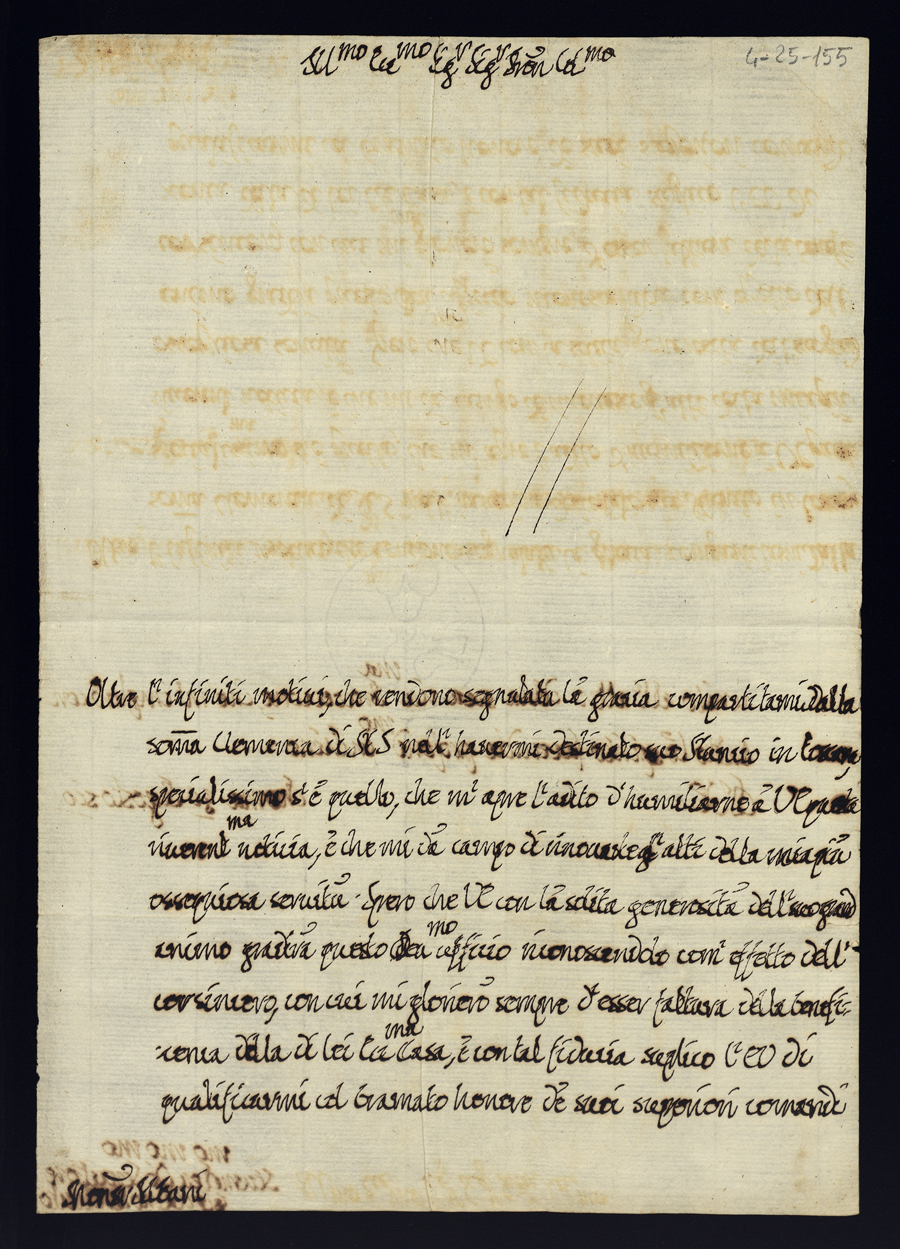 Ill.mo Ecc.mo Sig.r Sig.r Pron Col.mo
4-25-155
Oltre l'infiniti motivi, che rendono segnalata la gratia compartitami dalla
somma Clemenza di N.S nell' havermi destinato suo Nuntio in
spetialissimo s'è quello, che m'apre l'adito d'humiliarne à VE questa
riverent.ma notitia, è che mi dà campo di rinovarle gl'atti della mia più
ossequiosa servitù. Spero che VE con la solita generosità dell' suo grand'
animo gradirà questo officio riconoscendolo com' effetto dell'
cor sincero, con cui mi glorierò sempre d'esser fattura della benefi=
=cenza della di lei Ecc.ma Casa, è con tal fiducia suplico l'EV di
qualificarmi col bramato honore de suoi supriori comandi